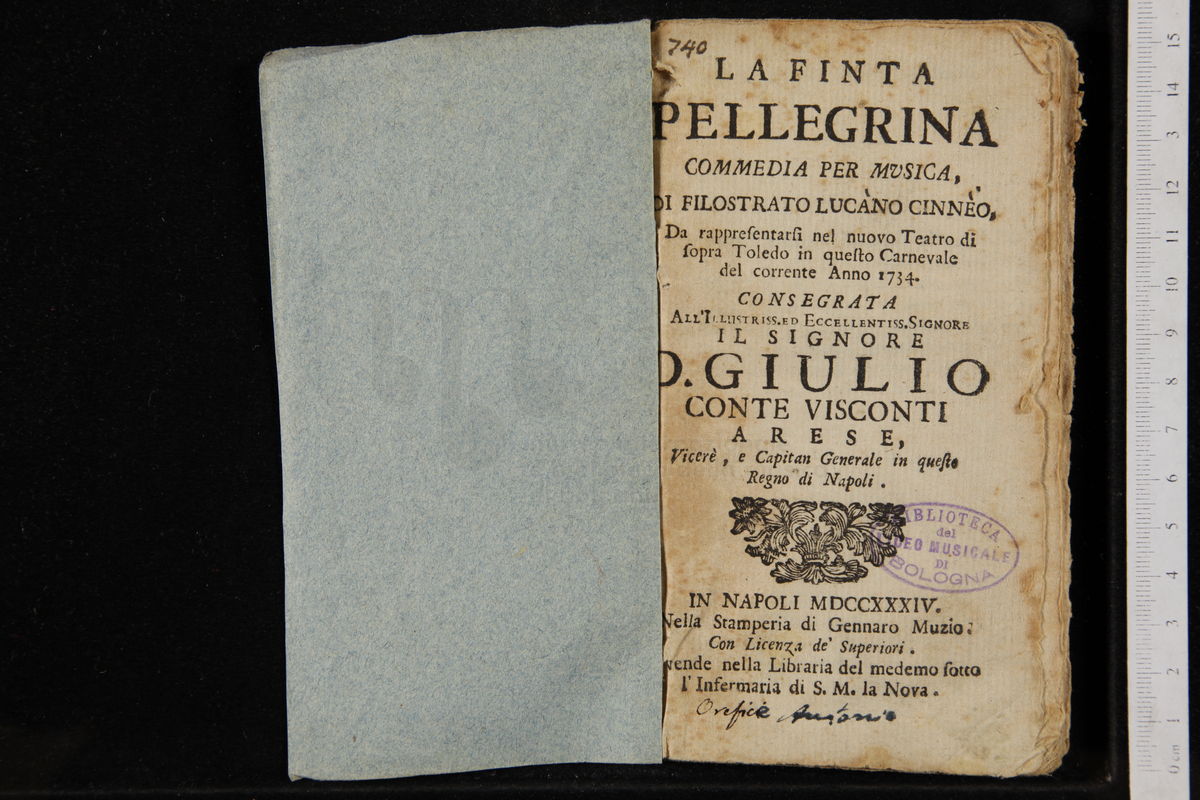 740
LA FINTA
PELLEGRINA
COMMEDIA PER MVSICA,
DI FILOSTRATO LUCÀNO CINNÈO,
Da rappreſentarſi nel nuovo Teatro di
ſopra Toledo in queſto Carnevale
del corrente Anno 1734.
CONSEGRATA
ALL'ILLUSTRISS. ED ECCELLENTISS. SIGNORE
IL SIGNORE
D. GIULIO
CONTE VISCONTI
ARESE,
Vicerè, e Capitan Generale in queſto
Regno di Napoli.
BIBLIOTECA
del
LICEO MUSICALE
DI
BOLOGNA
IN NAPOLI MDCCXXXIV.
Nella Stamperia di Gennaro Muzio.
Con Licenza de' Superiori.
vende nella Libraria del medemo ſotto
l'Infermaria di S. M. la Nova.
Orefice Antonio
15
14
3
12
11
10
9
8
7
6
5
4
3
2
1
0 cm